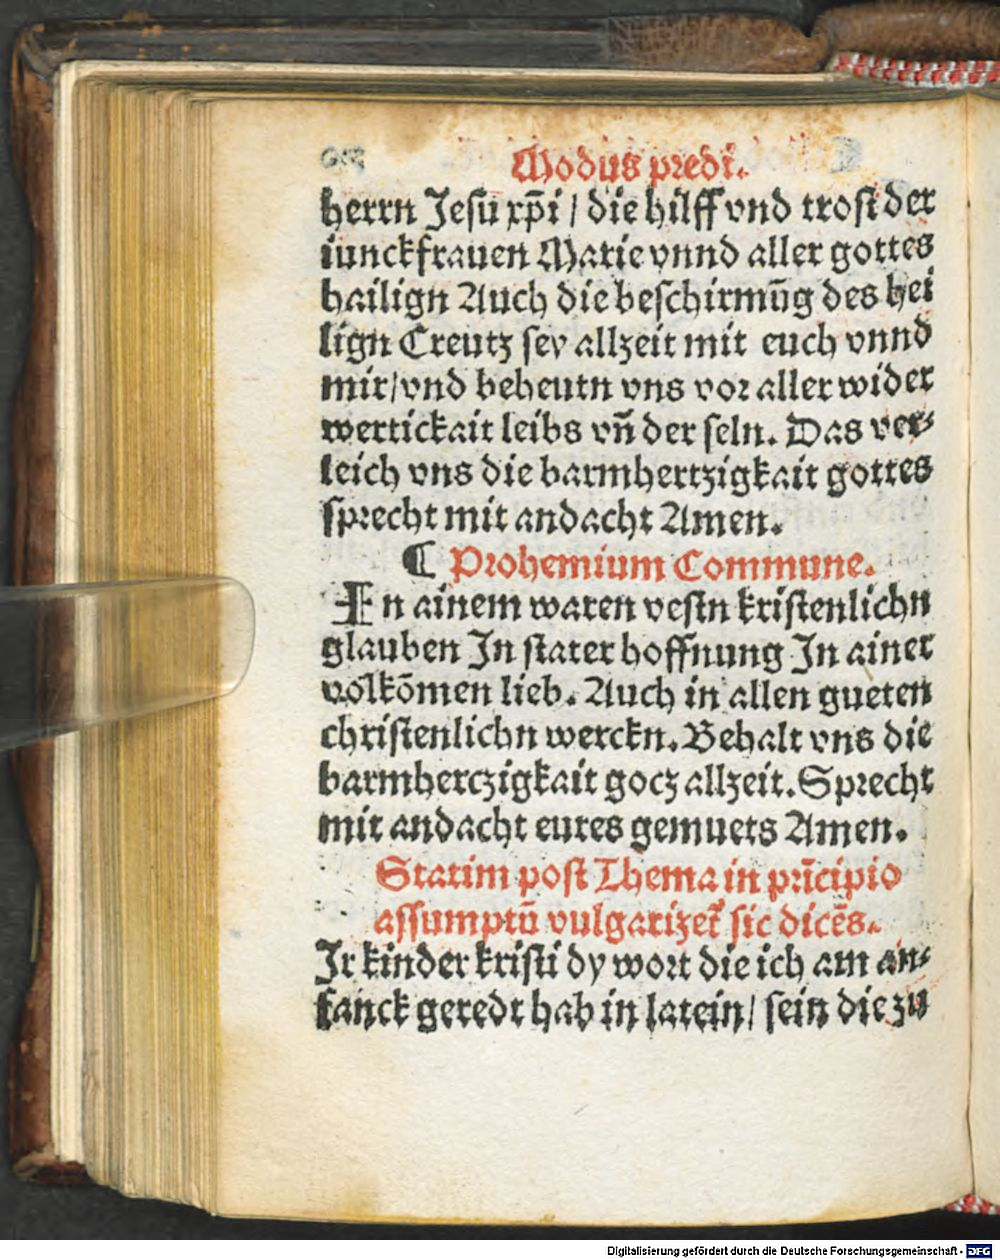 Modus predi.
herrn Jesu xp̄i / die hilff vnd trost der
iunckfrauen Marie vnnd aller gottes
hailign Auch die beschirmūg des hei
lign Creutz sey allzeit mit euch vnnd
mir/vnd beheutn vns vor aller wider
wertickait leibs vn̄ der seln. Das ver⸗
leich vns die barmhertzigkait gottes
sprecht mit andacht Amen.
¶ Prohemium Commune.
In ainem waren vestn kristenlichn
glauben In stater hoffnung In ainer
volkōmen lieb. Auch in allen gueten
christenlichn werckn. Behalt vns die
barmherczigkait gocz allzeit. Sprecht
mit andacht eures gemuets Amen.
Statim post Thema in prīcipio
assumptū vulgarizet᷑ sic dicēs.
Ir kinder kristi dy wort die ich am an⸗
fanck geredt hab in latein/ sein die zu
Digitalisierung gefördert durch die Deutsche Forschungsgemeinschaft - DFG